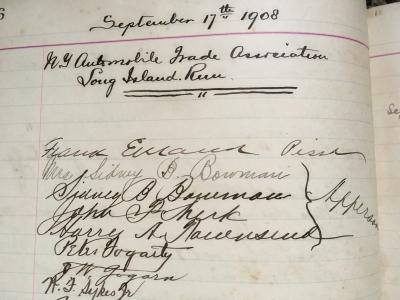 6
September 17th 1908
N.Y Automobile Trade Association
Long Island Run.
"
Frank
Mrs Sidney B. Bowman
Sidney B Bowman
John
Harry A. Townsend
Apperson
Fogarty
W.
H. F. Sykes Jr
Se